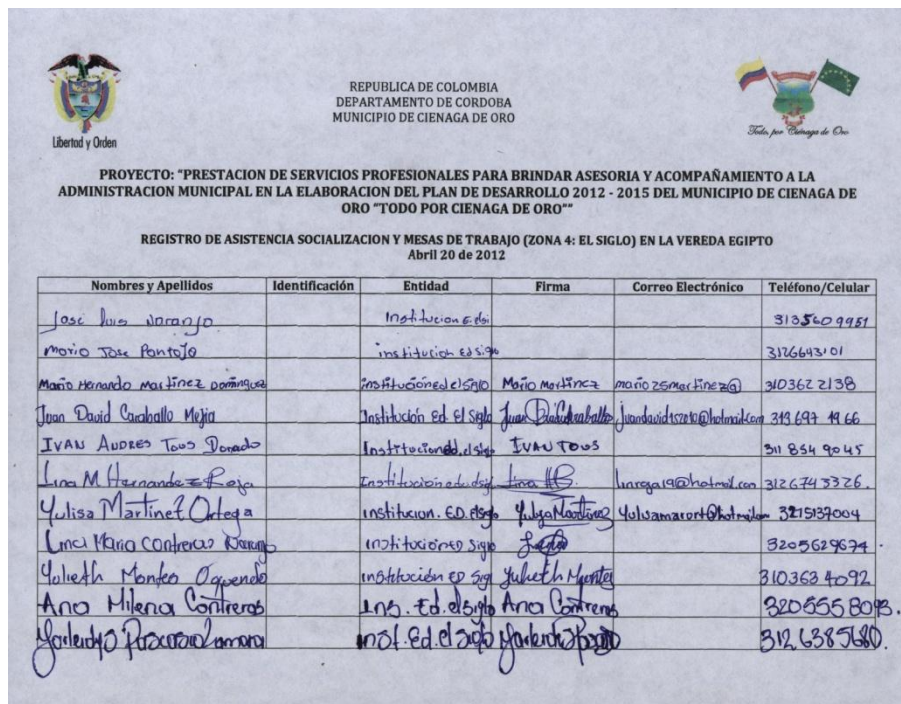 Libertad y Orden
REPUBLICA DE COLOMBIA
DEPARTAMENTO DE CORDOBA
MUNICIPIO DE CIENAGA DE ORO
Todo por Cienaga de Oro
PROYECTO: "PRESTACION DE SERVICIOS PROFESIONALES PARA BRINDAR ASESORIA Y ACOMPAÑAMIENTO A LA
ADMINISTRACION MUNICIPAL EN LA ELABORACION DEL PLAN DE DESARROLLO 2012 - 2015 DEL MUNICIPIO DE CIENAGA DE
ORO "TODO POR CIENAGA DE ORO""
REGISTRO DE ASISTENCIA SOCIALIZACION Y MESAS DE TRABAJO (ZONA 4: EL SIGLO) EN LA VEREDA EGIPTO
Abril 20 de 2012
Nombres y Apellidos Identificación Entidad Firma Correo Electrónico Teléfono/Celular
Jose luis Naranjo Institucion 3135609951
Mario Jose Pantoja institucion Ed siglo 3126643101
Mario Hernando Martinez Dominguez institucion ed el siglo Mario Martinez mario25martinez@ 3103622138
Juan David Caraballo Mejia Institución Ed El Siglo Juan David Caraballo 313 697 1966
IVAN ANDRES Tous Donado Institucion Ed. el siglo IVAN TOUS 311 854 9045
Lina M Hernandez Institucion edu el siglo Lina linroga19@hotmail.com 3126743326.
Yulisa Martinez Ortega institucion. ED. el siglo Yulisa Martinez 3215137004
Lina Maria Contreras Naranjo institucion ED siglo 3205629674
Yulieth Montes Oquendo institución ED Sig Yulieth Montes 3103634092
Ana Milena Contreras Ins. Ed. el siglo Ana Contreras 3205558093.
inst. Ed. el siglo 3126385680.